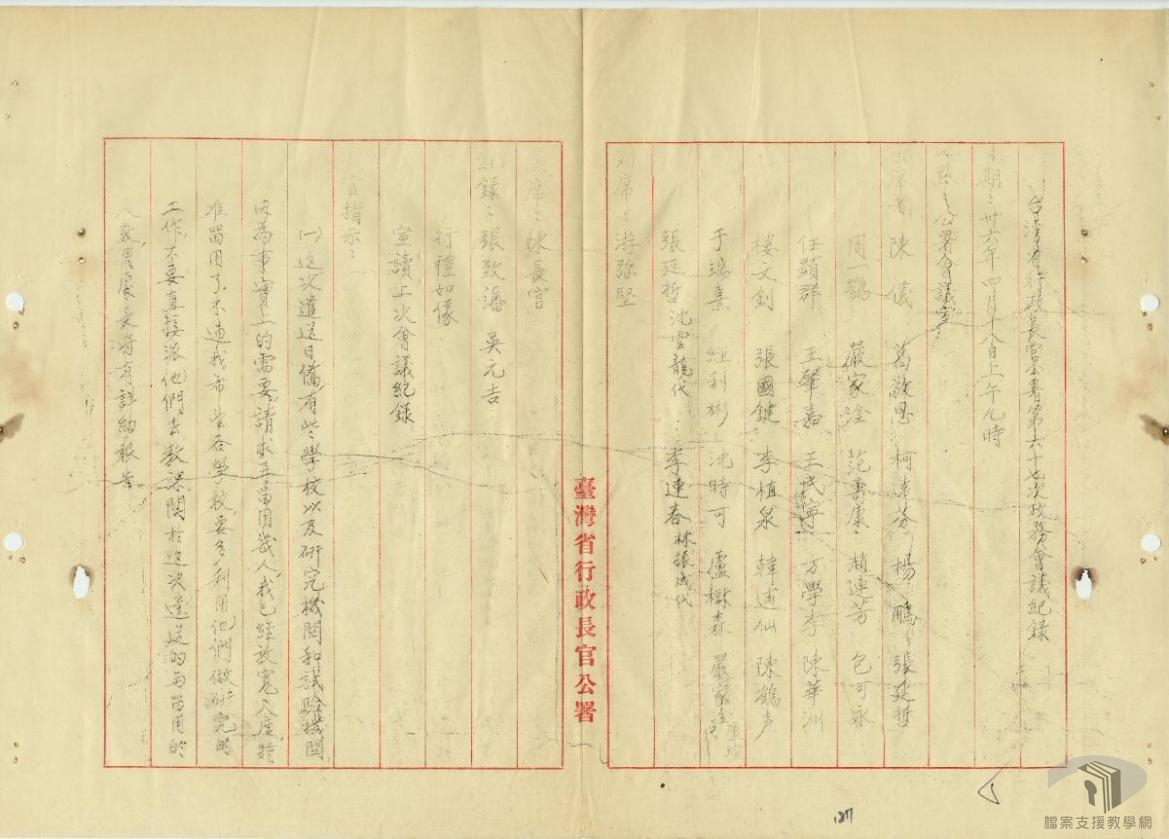 台灣省行政長官公署第六十七次政務會議紀錄
期：卅六年四月十八日上午九時
點：公署會議室
席者 陳儀 葛敬恩 柯遠芬 楊鵬 張延哲
周一鶚 嚴家淦 范壽康 趙連芳 包可永
任顯群 王肇嘉 王民寧 方學李 陳華洲
樓文釗 張國鍵 李植泉 韓逋仙 陳鶴声
于瑞熹 經利彬 沈時可 盧樹森 嚴家淦
張延哲 沈雲龍代 李連春 林振成代
列席：游弥堅
臺灣省行政長官公署
主席：陳長官
紀錄：張致藩 吳元吉
行禮如儀
宣讀上次會議紀錄
官指示：
(一)這次遣送日僑，有些學校以及研究機關和試驗機關
因為事實上的需要，請求再留用幾人，我已經放寬尺度，特
准留用了，不過我希望各學校要多利用他們做研究的
工作，不要直接派他們去教課，關於這次遣送的與留用的
人數，周處長將有詳細報告。
127
檔案支援教學網